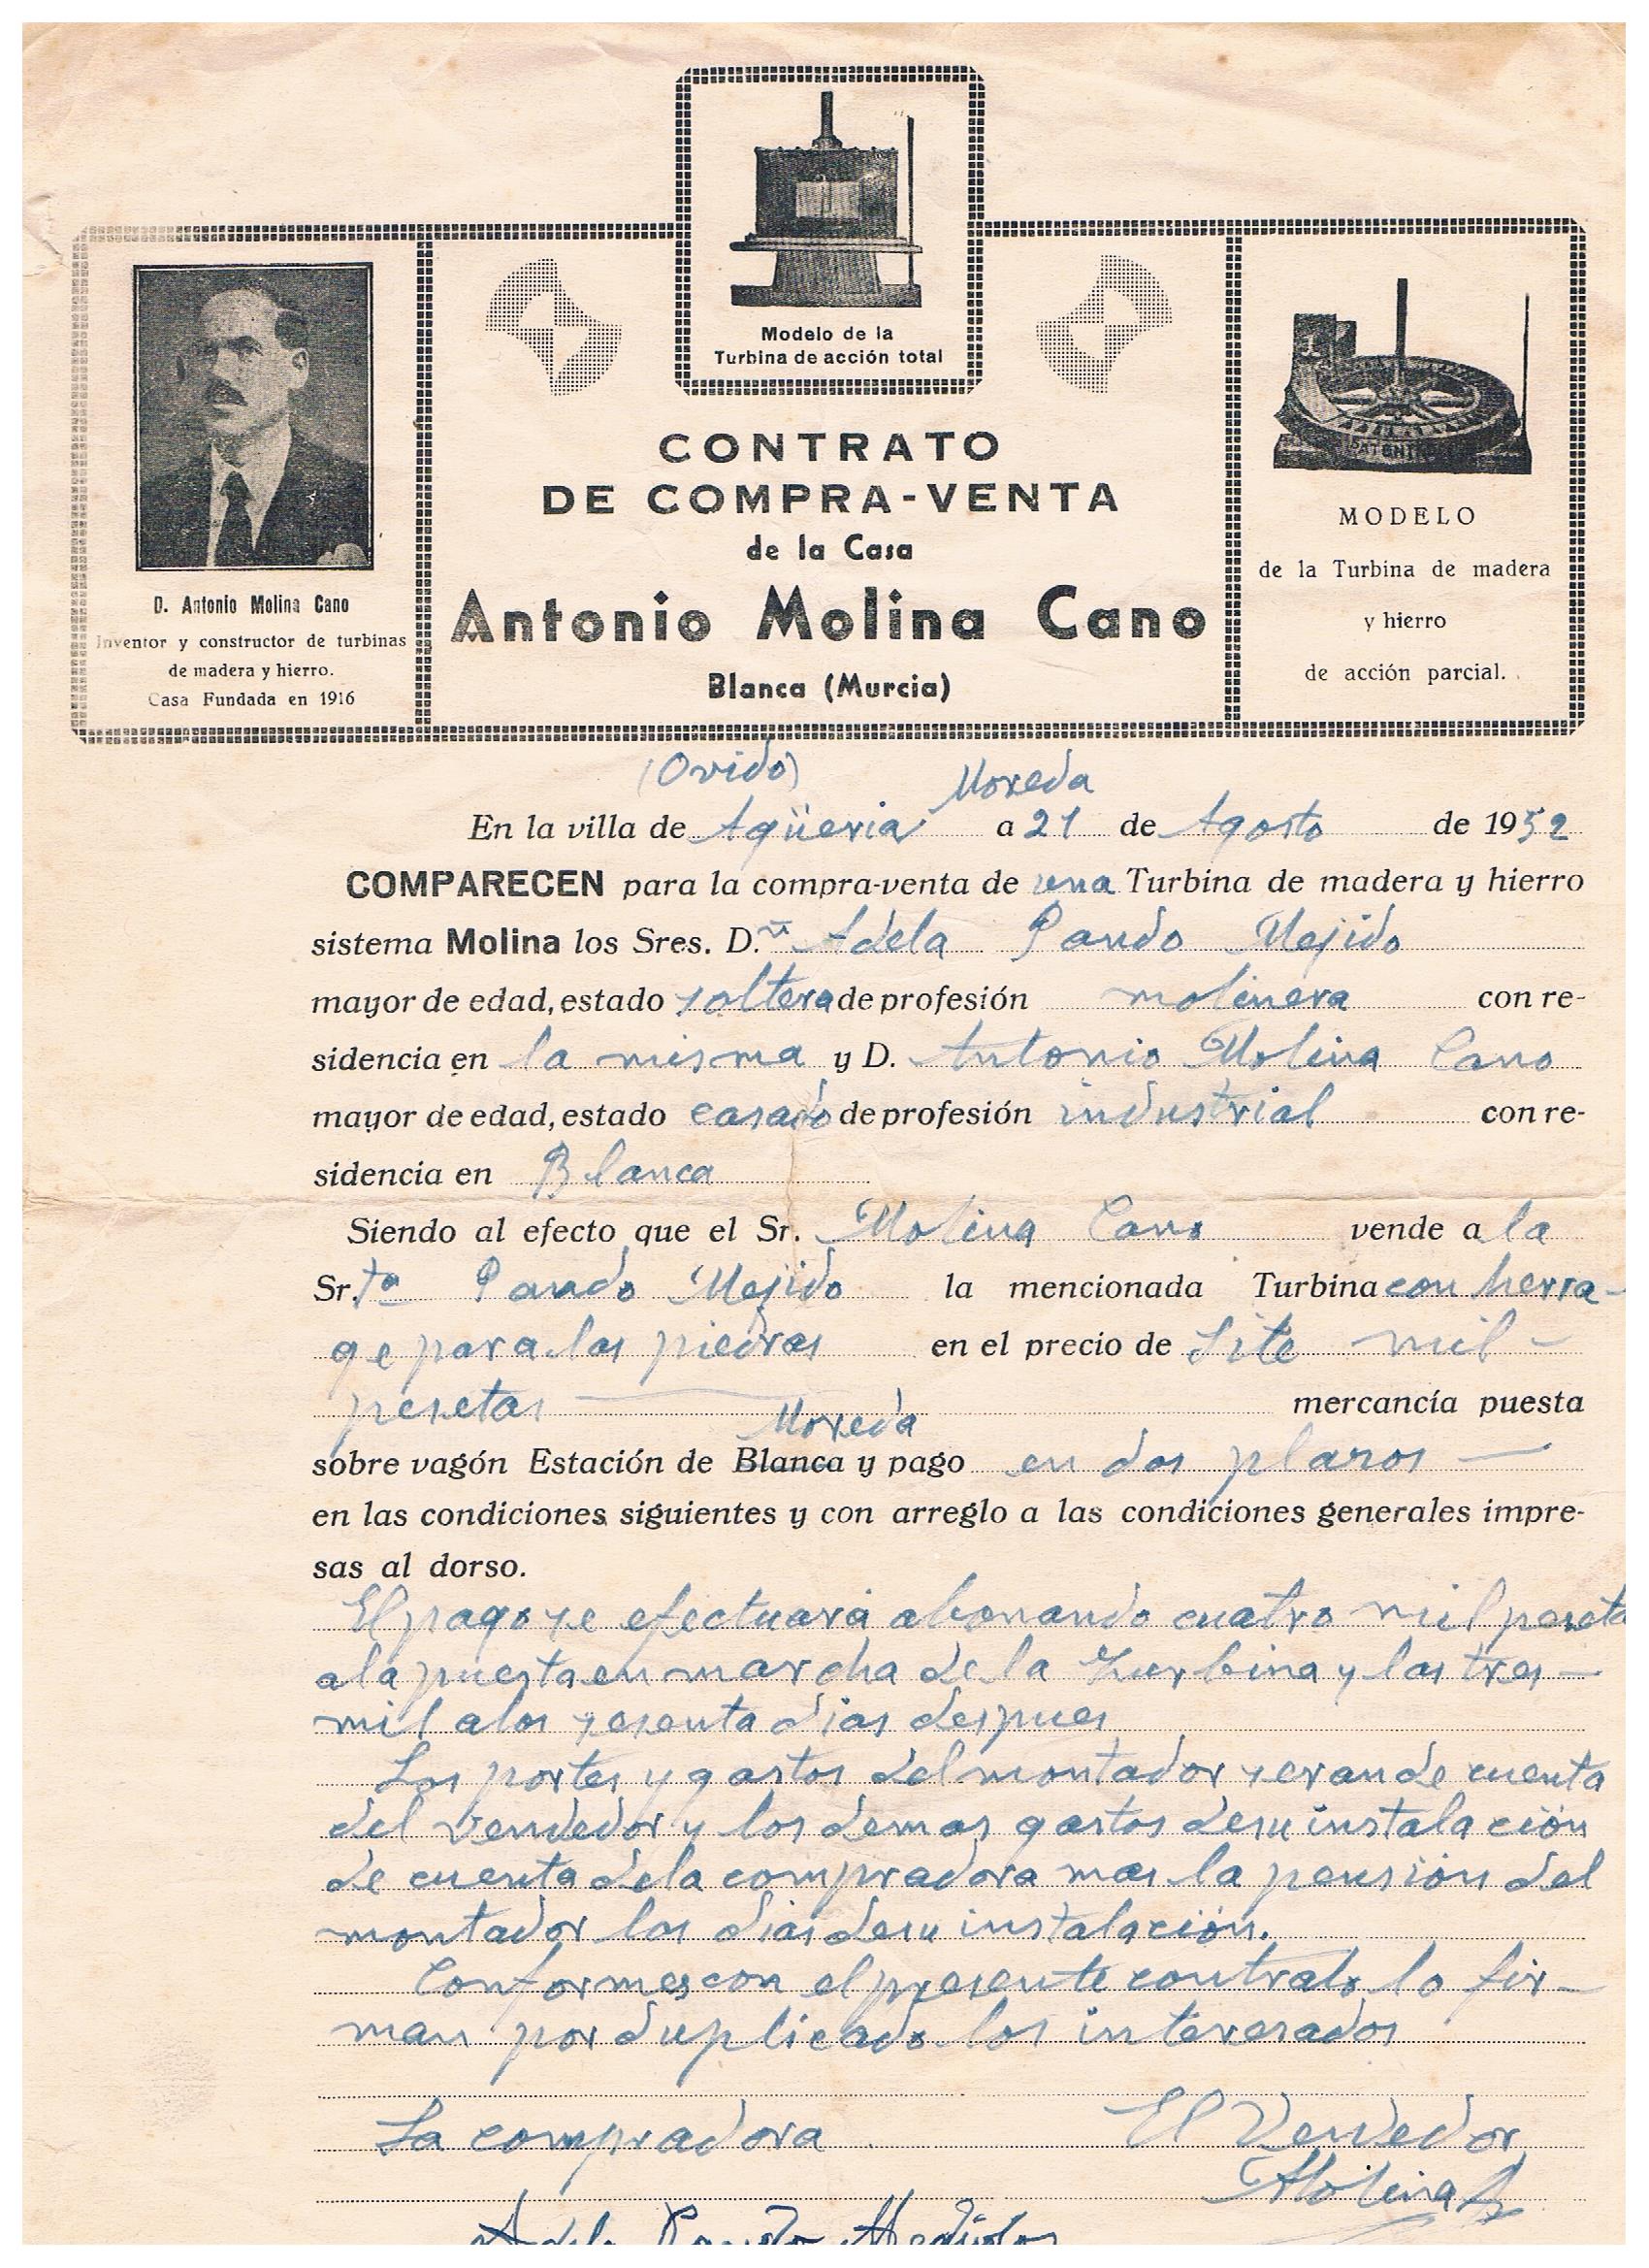 Modelo de la
Turbina de acción total
CONTRATO
DE COMPRA-VENTA
de la Casa
Antonio Molina Cano
Blanca (Murcia)
D. Antonio Molina Cano
Inventor y constructor de turbinas
de madera y hierro.
Casa Fundada en 1916
MODELO
de la Turbina de madera
y hierro
de acción parcial.
(Ovido) Moreda
En la villa de Agüeria a 21 de Agosto de 1952
COMPARECEN para la compra-venta de una Turbina de madera y hierro
sistema Molina los Sres. D.ª Adela Pando Mejido
mayor de edad, estado soltera de profesión molinera con re-
sidencia en la misma y D. Antonio Molina Cano
mayor de edad, estado casado de profesión industrial con re-
sidencia en Blanca
Siendo al efecto que el Sr. Molina Cano vende a la
Sr.ta Pando Mejido la mencionada Turbina con herra-
ge para las piedras en el precio de Site mil -
pesetas mercancía puesta
Moreda
sobre vagón Estación de Blanca y pago en dos plazos —
en las condiciones siguientes y con arreglo a las condiciones generales impre-
sas al dorso.
El pago se efectuará abonando cuatro mil peseta
a la puesta en marcha de la Turbina y las tres —
mil a los sesenta dias despues
Los portes y gastos del montador seran de cuenta
del vendedor y los demas gastos de su instalación
de cuenta de la compradora mas la pensión del
montador los dias de su instalación.
Conformes con el presente contrato lo fir-
man por duplicado los interesados
La compradora El Vendedor
Molina
Adela Pando Mejido